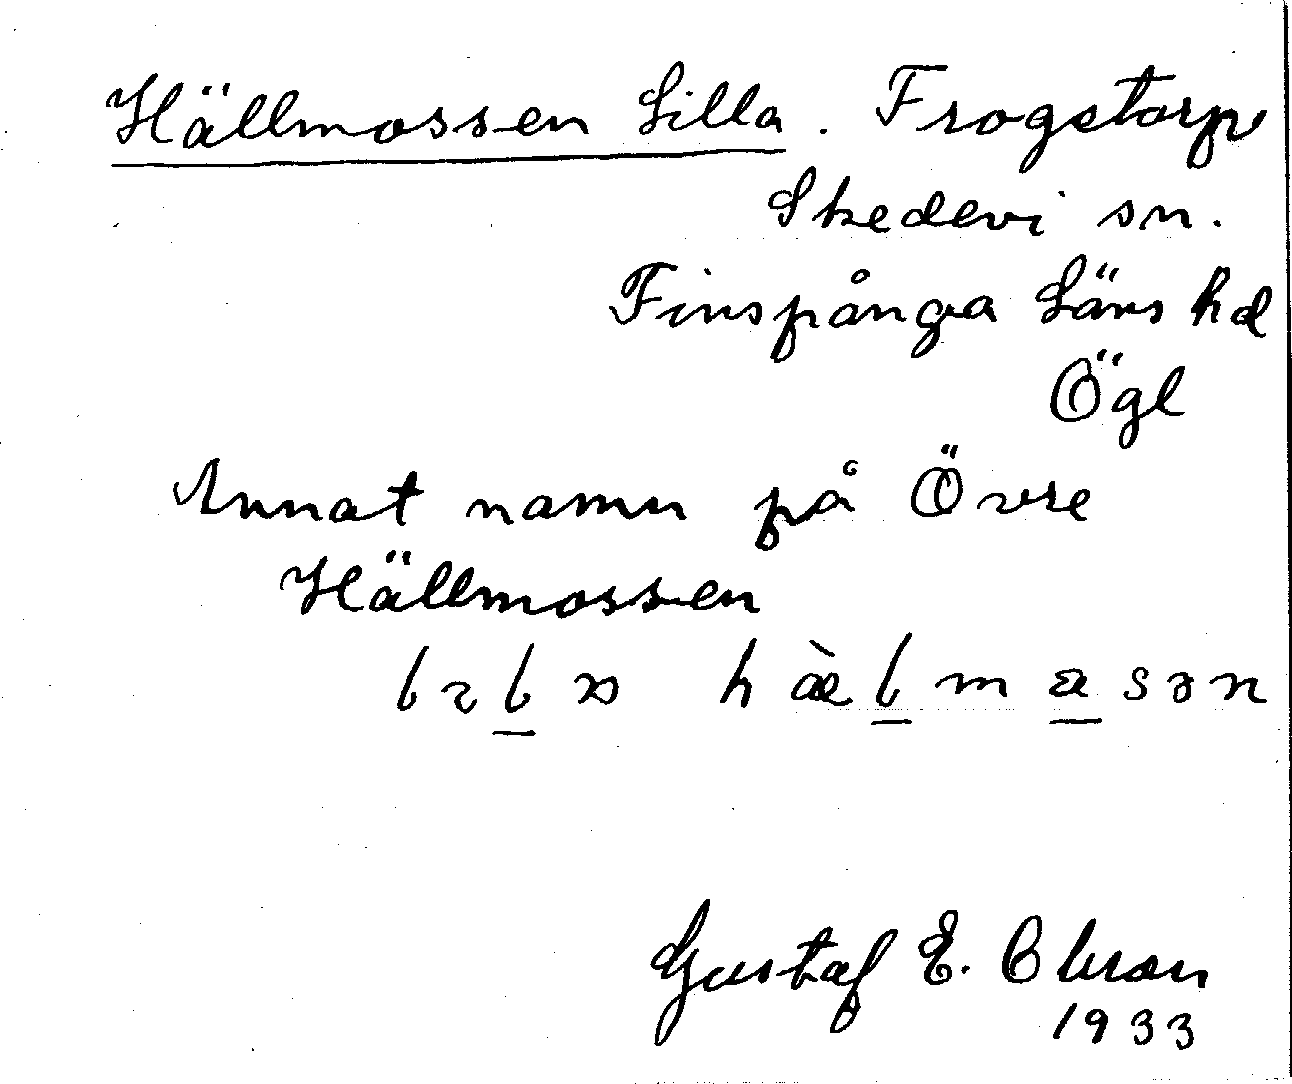 Hällmossen Lilla. Frogstorp
Skedevi sn.
Finspånga Läns hd
Ögl
Annat namn på Övre
Hällmossen
Gustaf E. Olsson
1933